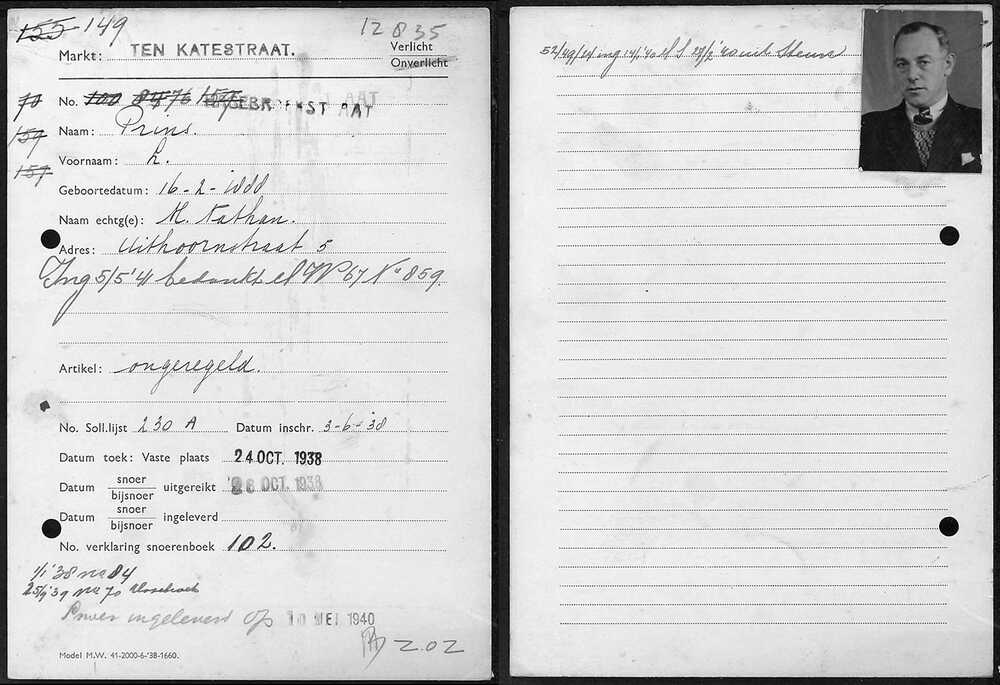 155-149
12835
Markt: TEN KATESTRAAT.
Verlicht
Onverlicht
70 No. 100 84 76 157
159 Naam: Prins.
Voornaam: L.
157
Geboortedatum: 16-2-1888
Naam echtg(e): M. Nathan.
Adres: Uithoornstraat 5
Ing 5/5'41 bedankt el W 67 No 859.
Artikel: ongeregeld.
No. Soll.lijst 230 A Datum inschr. 3-6-38
Datum toek: Vaste plaats 24 OCT. 1938
Datum snoer/bijsnoer uitgereikt 28 OCT. 1938
Datum snoer/bijsnoer ingeleverd
No. verklaring snoerenboek 102.
1/1'38 no 84
25/9'39 no 70
ingeleverd op 10 MEI 1940
202
Model M.W. 41-2000-6-'38-1660.
52/49/24 ing 14/1'40 27/2'40 uit Steun